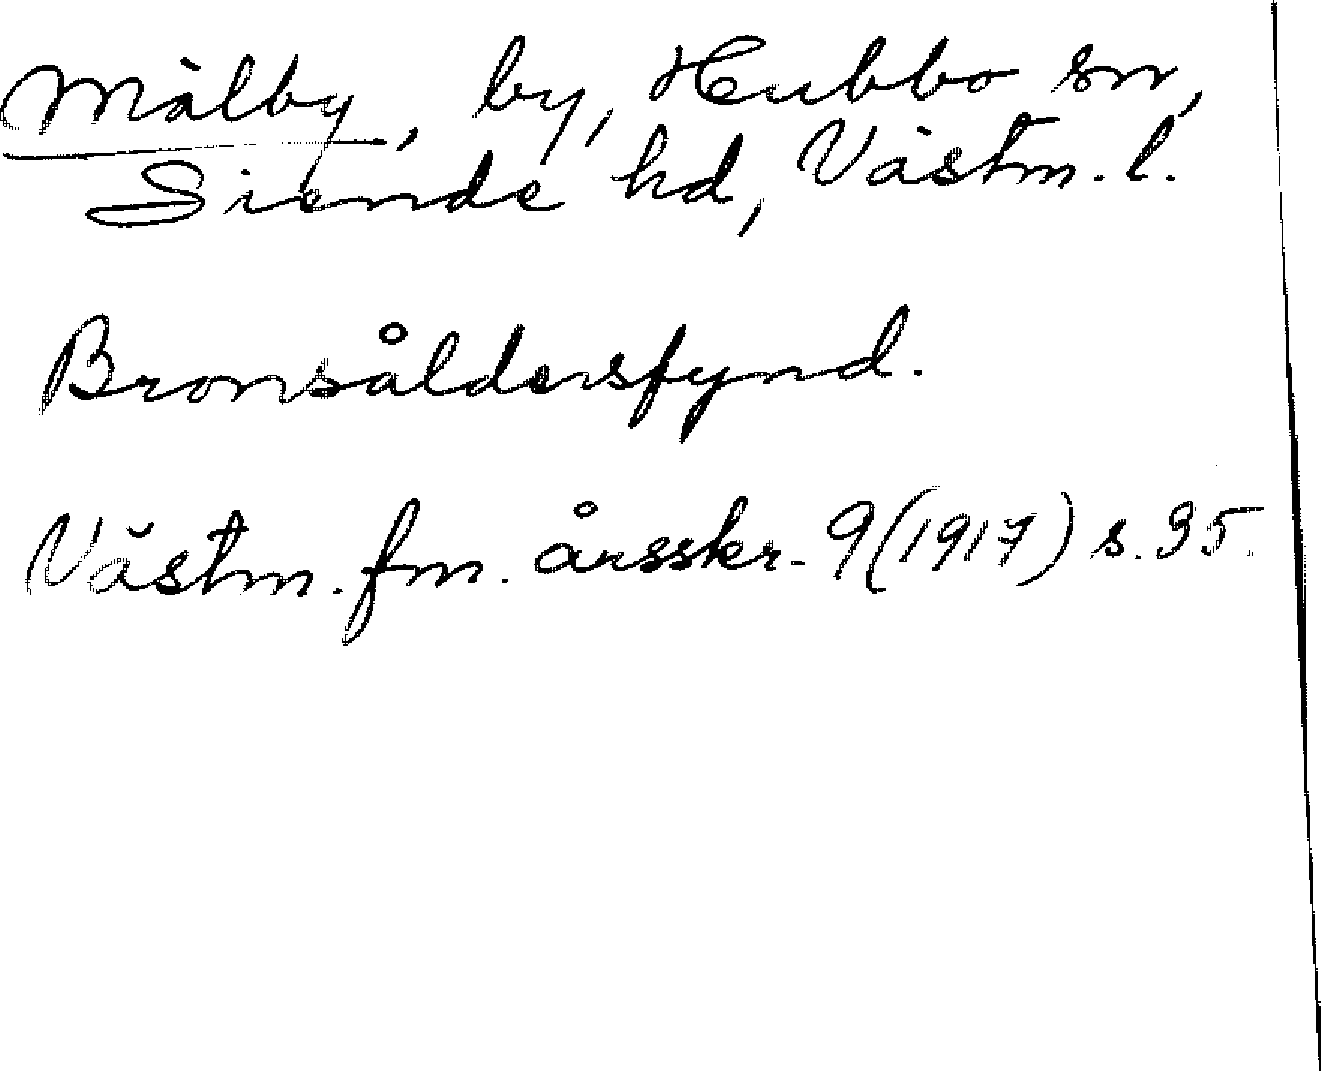 Mälby, by, Hubbo sn,
Siende hd, Västm. l.
Bronsåldersfynd.
Västm. fm. årsskr. 9 (1917) s. 95.